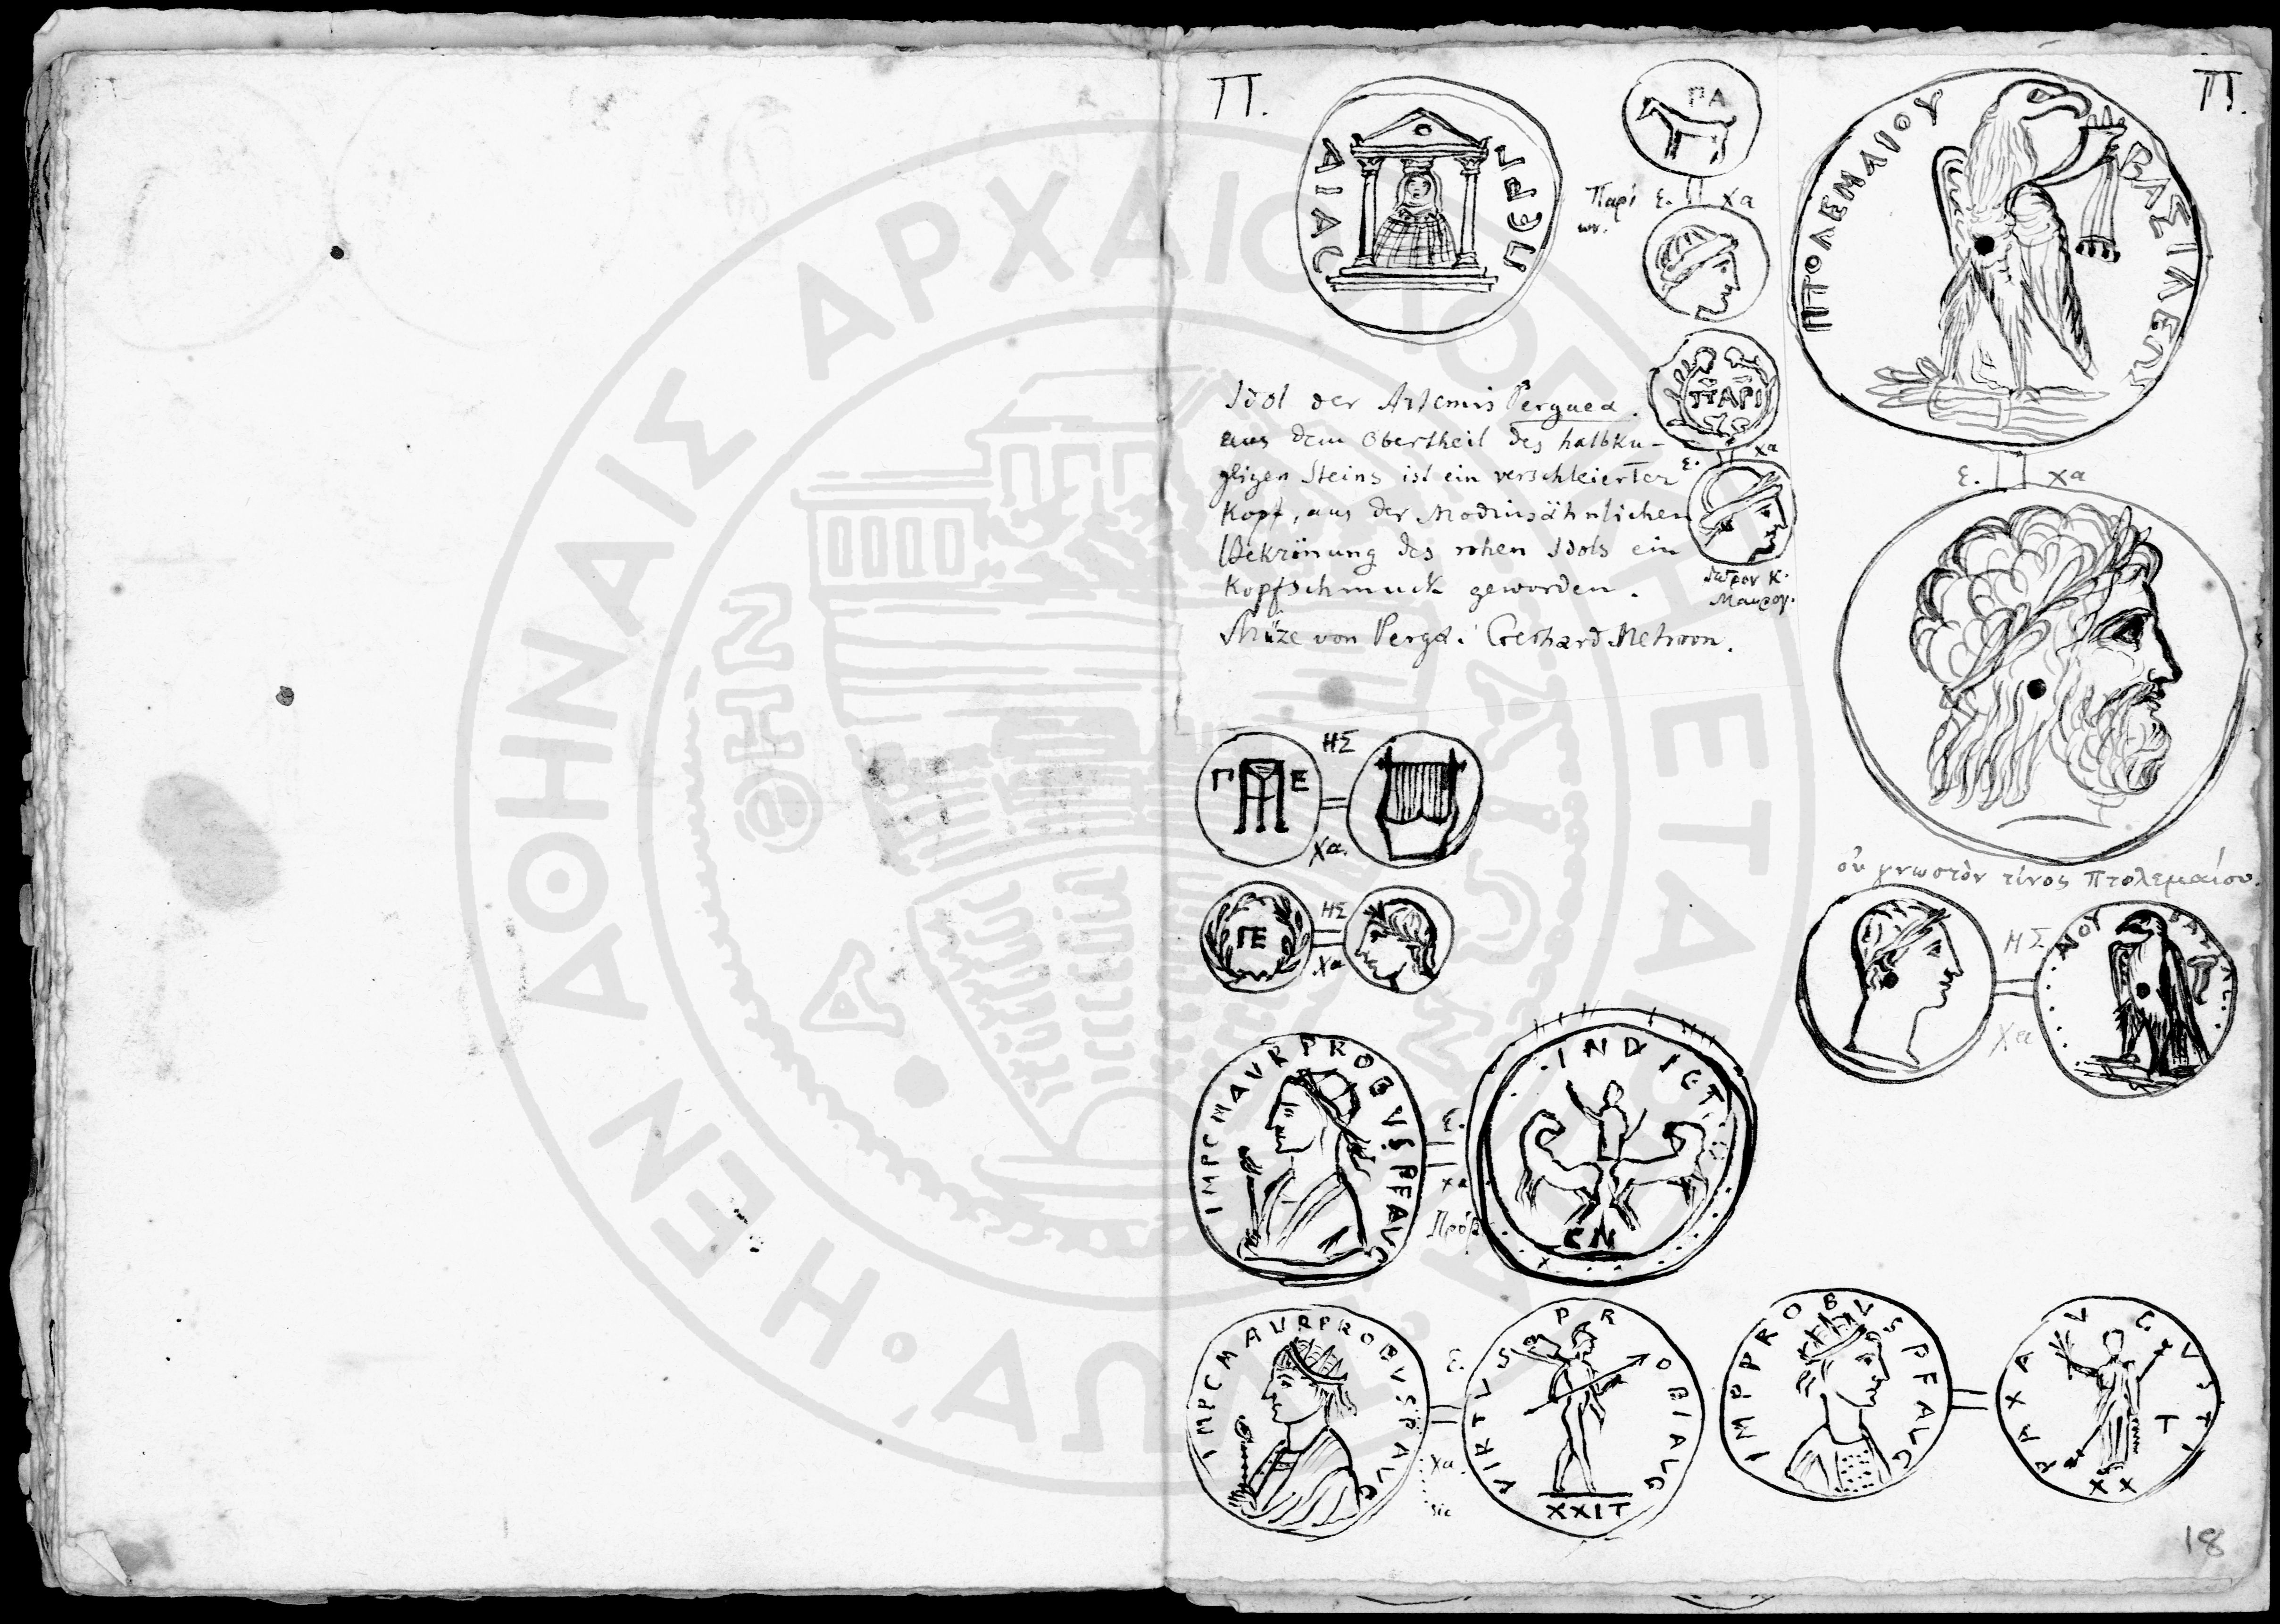 Π.
ΠΕΡΓ
ΑΙΑC
ΠΑ
Παρί
ων.
ε. χα
Idol der Artemis Pergaea.
aus dem Obertheil des halbku-
gligen Steins ist ein verschleierter
Kopf, aus der Modiusähnlichen
Bekrönung des rohen Idols ein
Kopfschmuck geworden.
Münze von Perga: Gerhard Metroon.
ΠΑΡΙ
ε. χα
Ἰατρὸν Κ.
Μαυρογ.
Π.
ΠΤΟΛΕΜΑΙΟΥ
ΒΑΣΙΛΕΩΣ
ε. χα
οὐ γνωστὸν τίνος πτολεμαίου.
ΗΣ
χα
ΑΙΟΥ ΒΑΣΙΛ
Γ Ε
ΗΣ
χα.
ΓΕ
ΗΣ
χα
IMPCMAVRPROBVSPFAVG
ε.
χα
Πρόβ
INDICT
CN
IMPCMAVRPROBVSPAVG
ε.
χα.
sic
VIRTVS PROBIAVG
XXIT
IMPPROBVSPFAVG
PAXAVGVSTI
T
XX
18
ΑΘΗΝΑΙΣ ΑΡΧΑΙΟΛΟΓΙΚΗ ΕΤΑΙΡΕΙΑ
Η ΕΝ